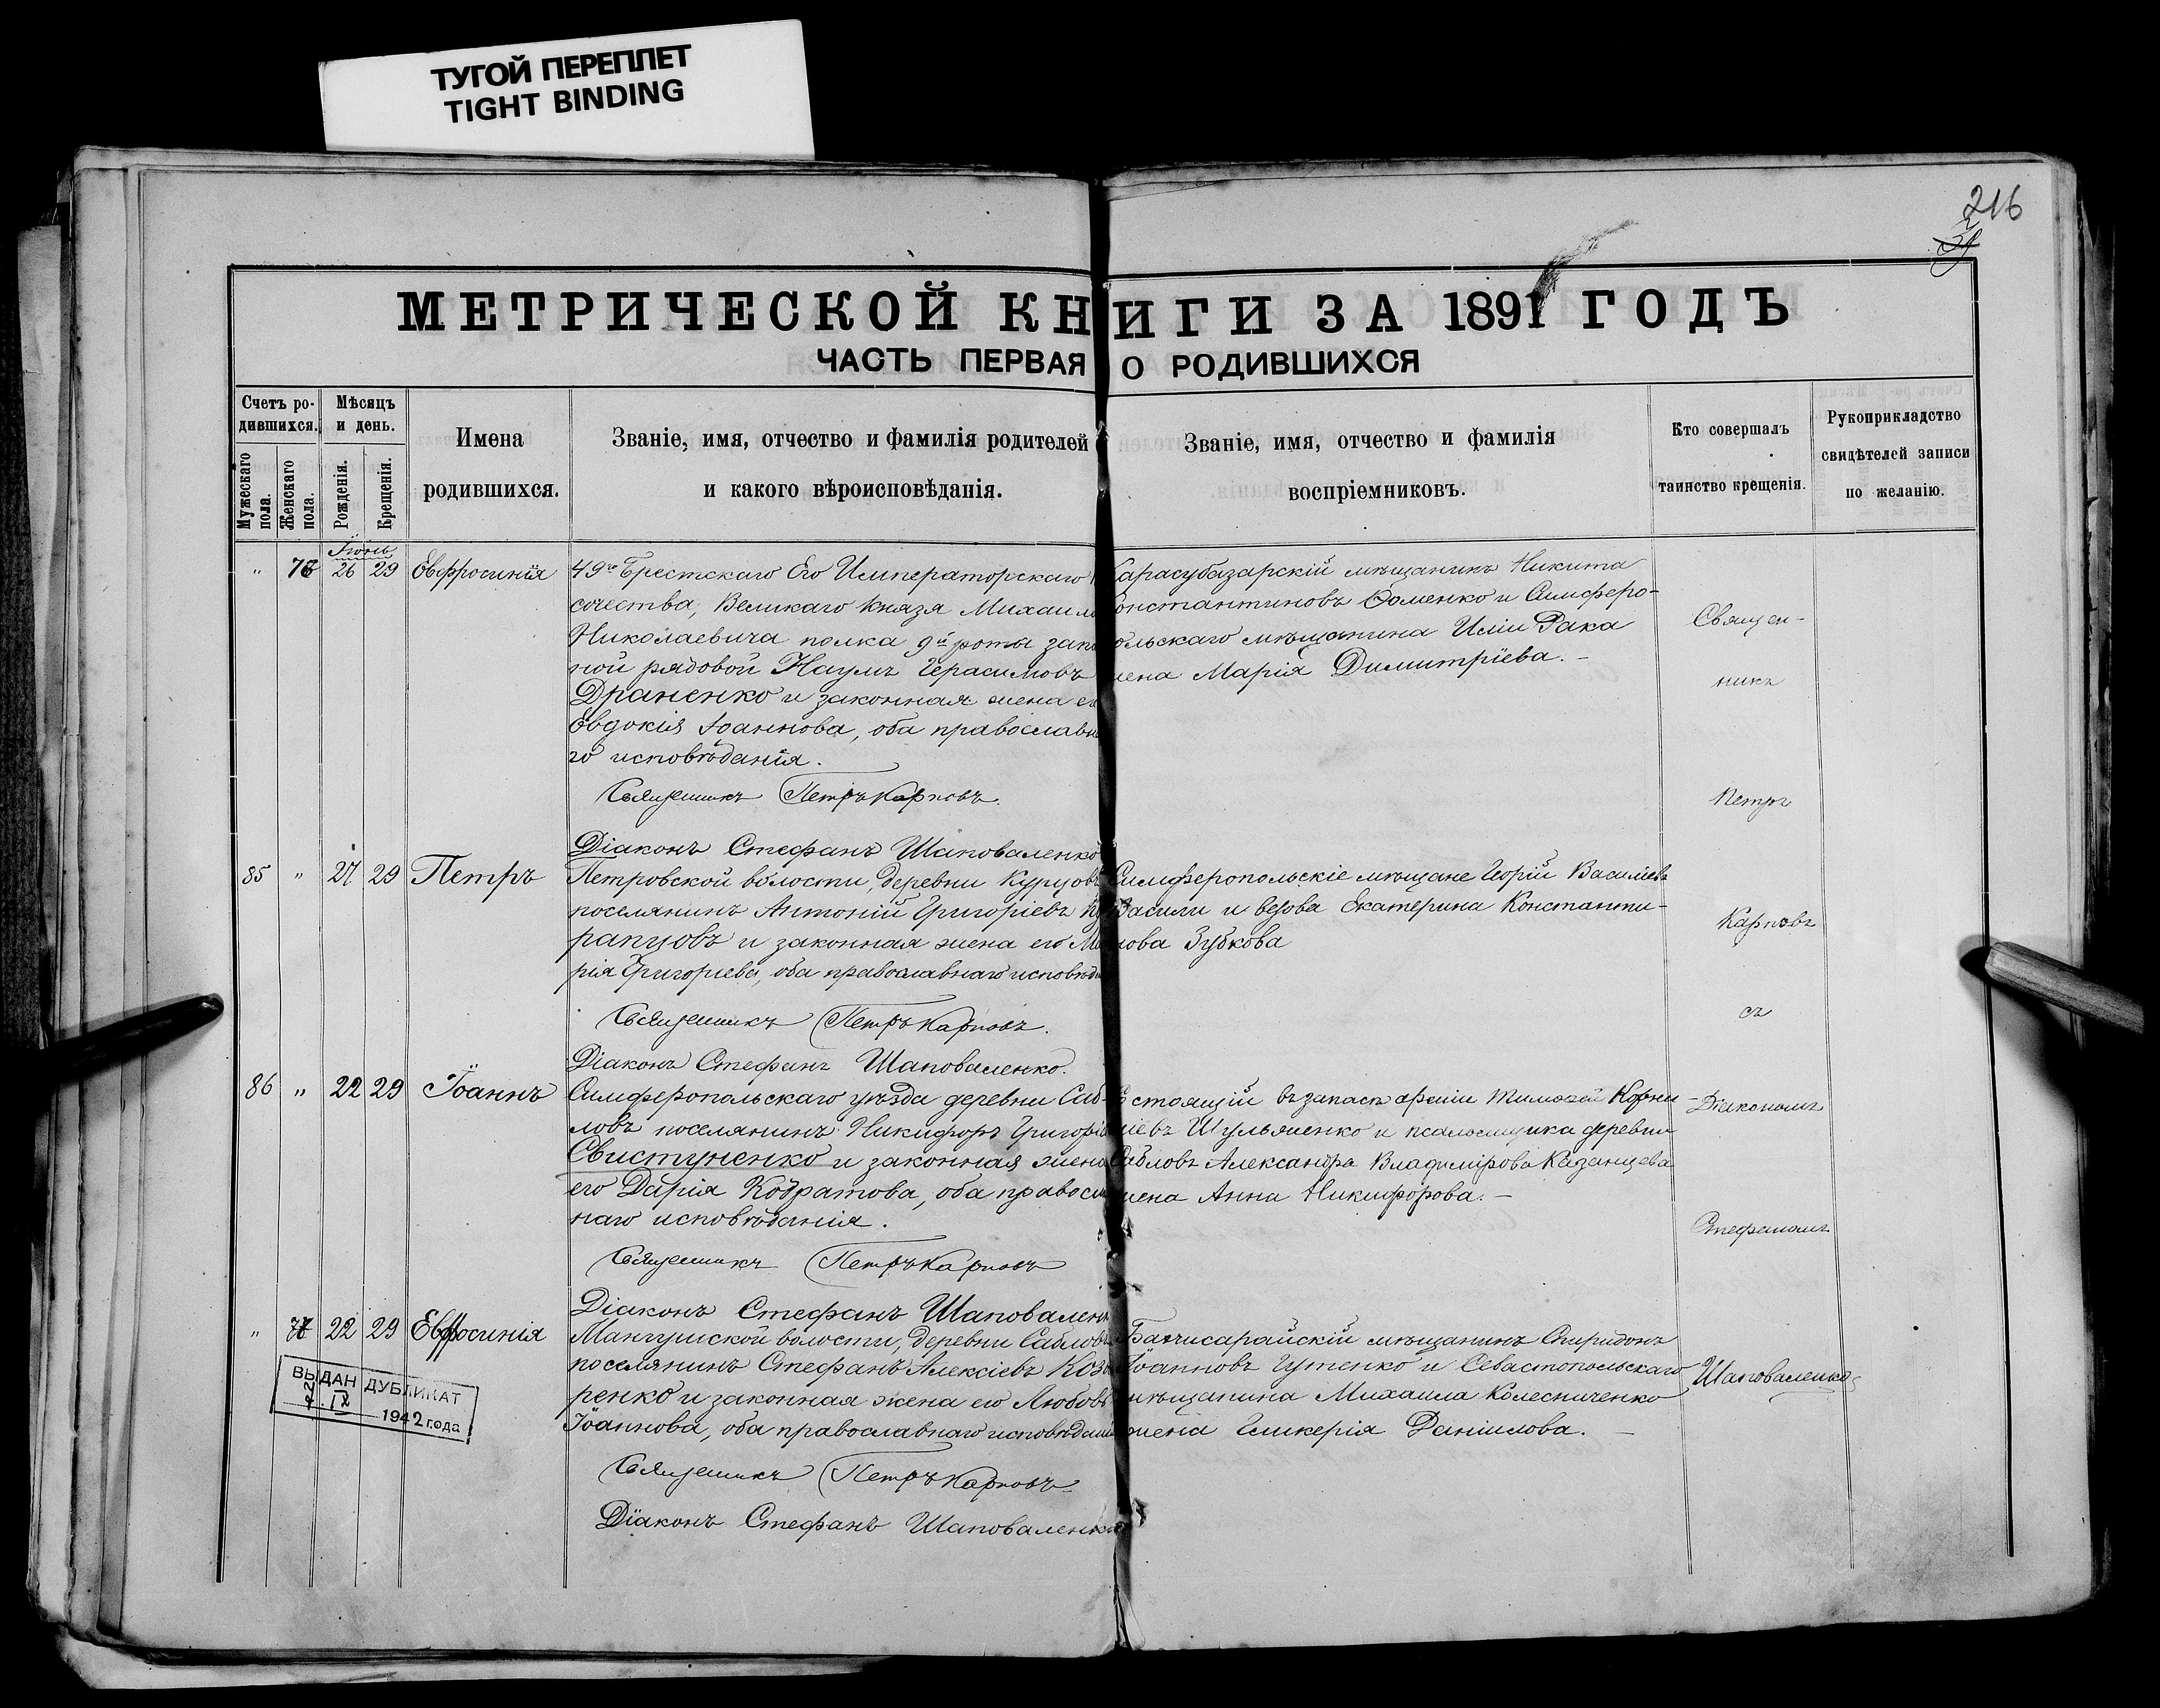 ТУГОЙ ПЕРЕПЛЕТ
TIGHT BINDING
216
МЕТРИЧЕСКОЙ КНИГИ ЗА 1891 ГОДЪ
ЧАСТЬ ПЕРВАЯ О РОДИВШИХСЯ
Счетъ ро-
дившихся.
Мужескаго пола.
Женскаго пола.
Мѣсяцъ
и день.
Рожденія.
Крещенія.
Имена
родившихся.
Званіе, имя, отчество и фамилія родителей
и какого вѣроисповѣданія.
Званіе, имя, отчество и фамилія
воспріемниковъ.
Кто совершалъ
таинство крещенія.
Рукоприкладство
свидѣтелей записи
по желанію.
Іюнь
" 76 26 29 Евфросинія
49го Брестскаго Его Императорскаго
сочества, Великаго Князя Михаила
Николаевича полка 9й роты запа
ной рядовой Наумъ Герасимовъ
Драненко и законная жена е
Евдокія Іоаннова, оба православн
го исповѣданія.
Священникъ Петръ Карповъ.
Діаконъ Стефанъ Шаповаленко
Карасубазарскій мѣщанинъ Никита
Константиновъ Фоменко и Симферо-
польскаго мѣщанина Иліи Рака
жена Марія Димитріева.-
85 " 27 29 Петръ
Петровской волости, деревни Курцовъ
поселянинъ Антоній Григоріевъ
рапцовъ и законная жена его Ма
рія Григоріева, оба православнаго исповѣда
Священникъ Петръ Карповъ.
Діаконъ Стефанъ Шаповаленко.
Симферопольскіе мѣщане Георгій Василіевъ
Васили и вдова Екатерина Константи-
нова Зубкова
86 " 22 29 Іоаннъ
Симферопольскаго уѣзда деревни Саб-
ловъ поселянинъ Никифоръ Григоріе
Свистуненко и законная жена
его Дарія Кодратова, оба правосл
наго исповѣданія.
Священникъ Петръ Карповъ
Діаконъ Стефанъ Шаповаленк
стоящій въ запасѣ арміи Тимофей Корни-
ліевъ Шульженко и псаломщика деревни
Сабловъ Александра Владимірова Казанцева
жена Анна Никифорова.-
" 77 22 29 Евфросинія
Мангушской волости, деревни Сабловъ
поселянинъ Стефанъ Алексіевъ Коз
ренко и законная жена его Любовь
Іоаннова, оба православнаго исповѣдан
Священникъ Петръ Карповъ
Діаконъ Стефанъ Шаповаленко
Бахчисарайскій мѣщанинъ Спиридонъ
Іоанновъ Гутенко и Севастопольскаго
мѣщанина Михаила Колесниченко
жена Гликерія Даніилова.
Священ-
никъ
Петръ
Карповъ
съ
Діакономъ
Стефаномъ
Шаповаленко
ВЫДАН ДУБЛИКАТ
22 IV 1942 года